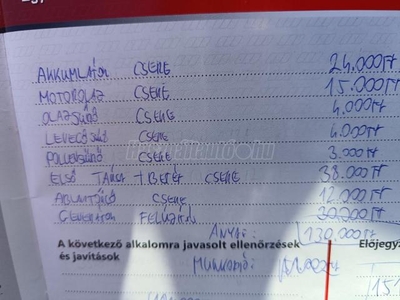 AKKUMLÁTOR CSERE 24.000Ft
MOTOROLAJ CSERE 15.000Ft
OLAJSZŰRŐ CSERE 4.000Ft
LEVEGŐSZŰRŐ CSERE 4.000Ft
POLLENSZŰRŐ CSERE 3.000Ft
ELSŐ TÁRCSA + BETÉT CSERE 38.000Ft
ABLAKTÖRLŐ CSERE 12.000Ft
GENERÁTOR 30.200Ft
ANYAG: 130.000Ft
A következő alkalomra javasolt ellenőrzések Előjegyz
és javítások
MUNKADÍJ:
151